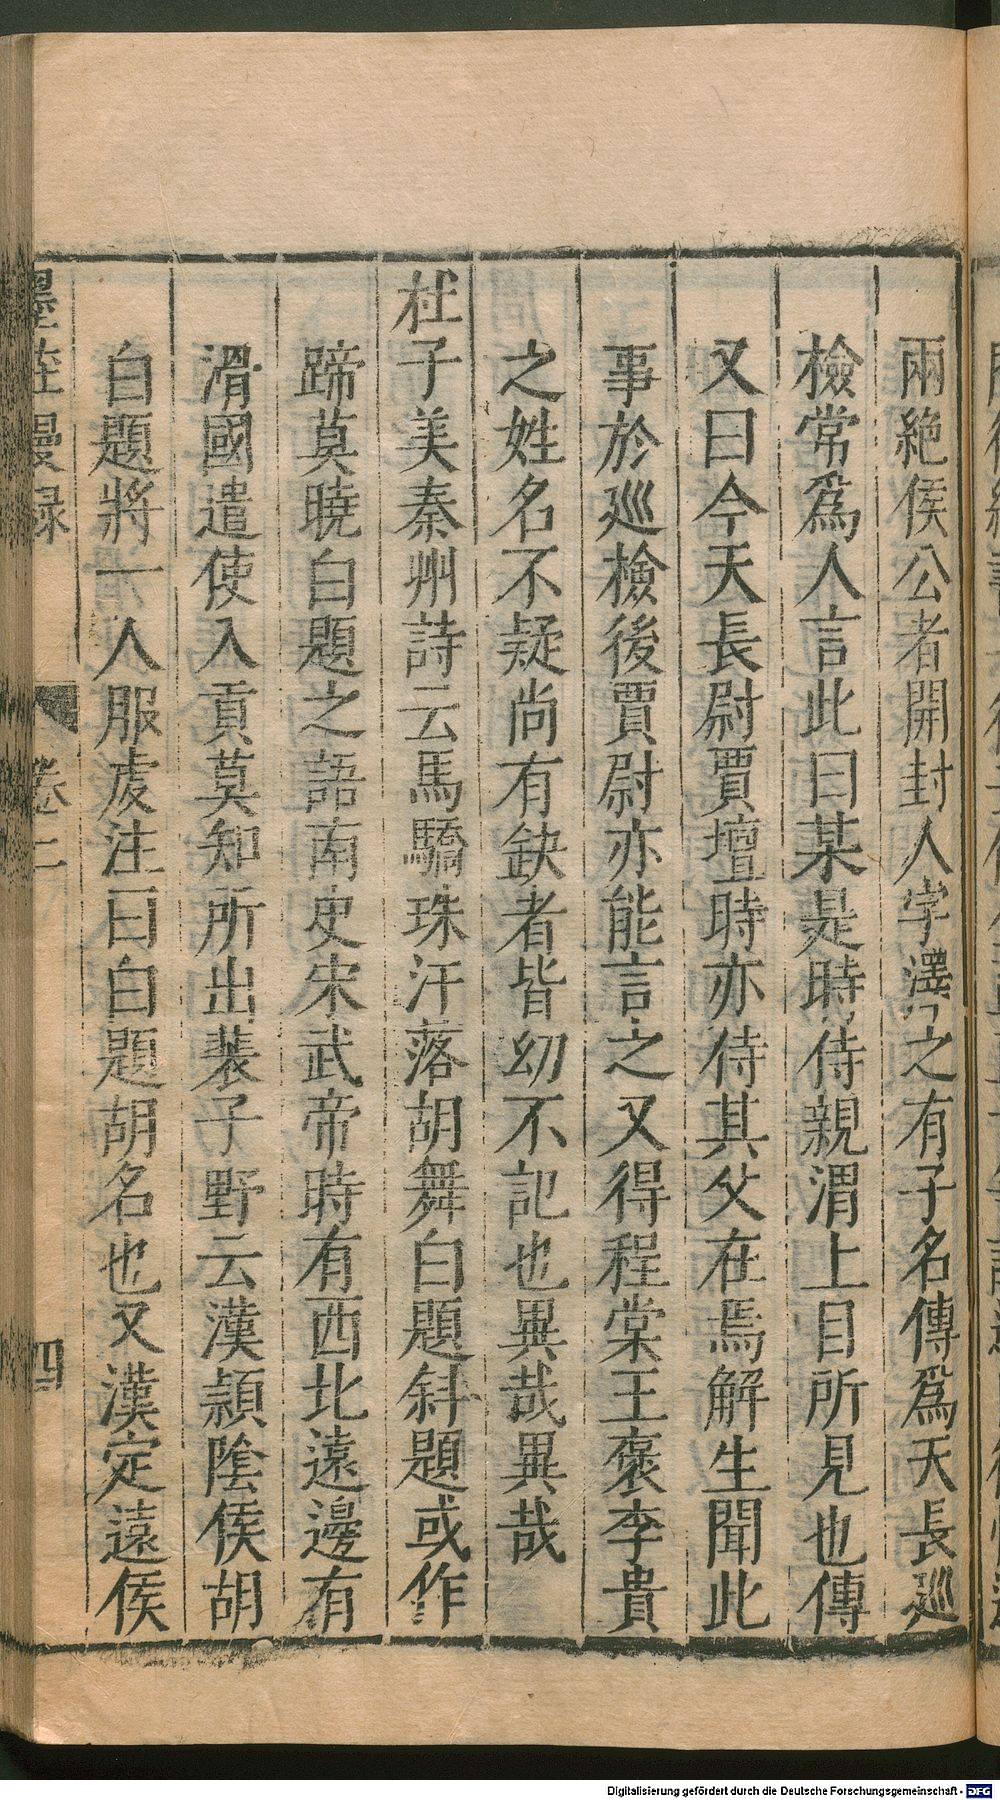 兩絶侯公者開封人字澤之有子名傳爲天長巡
檢常爲人言此曰某是時侍親渭上目所見也傳
又曰今天長尉賈壇時亦侍其父在焉解生聞此
事於巡檢後賈尉亦能言之又得程棠王褒李貴
之姓名不疑尚有缺者皆㓜不記也異哉異哉
杜子美秦州詩云馬驕珠汗落胡舞白題斜題或作
蹄莫曉白題之語南史宋武帝時有西北遠邊有
滑國遣使入貢莫知所出裴子野云漢潁陰侯胡
白題將一人服虔注曰白題胡名也又漢定遠侯
墨莊漫録 卷二 四
Digitalisierung gefördert durch die Deutsche Forschungsgemeinschaft - DFG